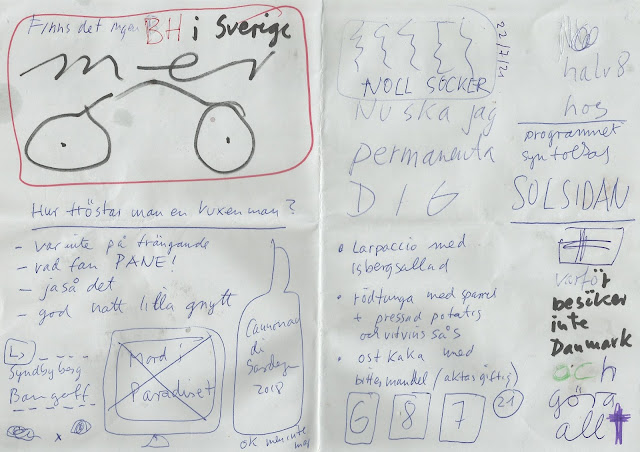 Finns det ingen BH i Sverige
mer
Hur tröstar man en vuxen man?
- var inte på trängande
- vad fan PANE!
- jaså det
- god natt lilla gnytt
Syndbyberg
Bangoff
Mord i
Paradiset
Cannonau
di
Sardegna
2018
OK men inte
mer
NOLL SOCKER
22/7/21
Nu ska jag
permanenta
DIG
• Carpaccio med
isbergsallad
• rödtunga med sparris
+ pressad potatis
och vitvinssås
• ostkaka med
bittermandel (aktas giftig)
6 8 7 21
halv 8
hos
programmet
syntolkas
SOLSIDAN
varför
besöker
inte
Danmark
och
göra
allt